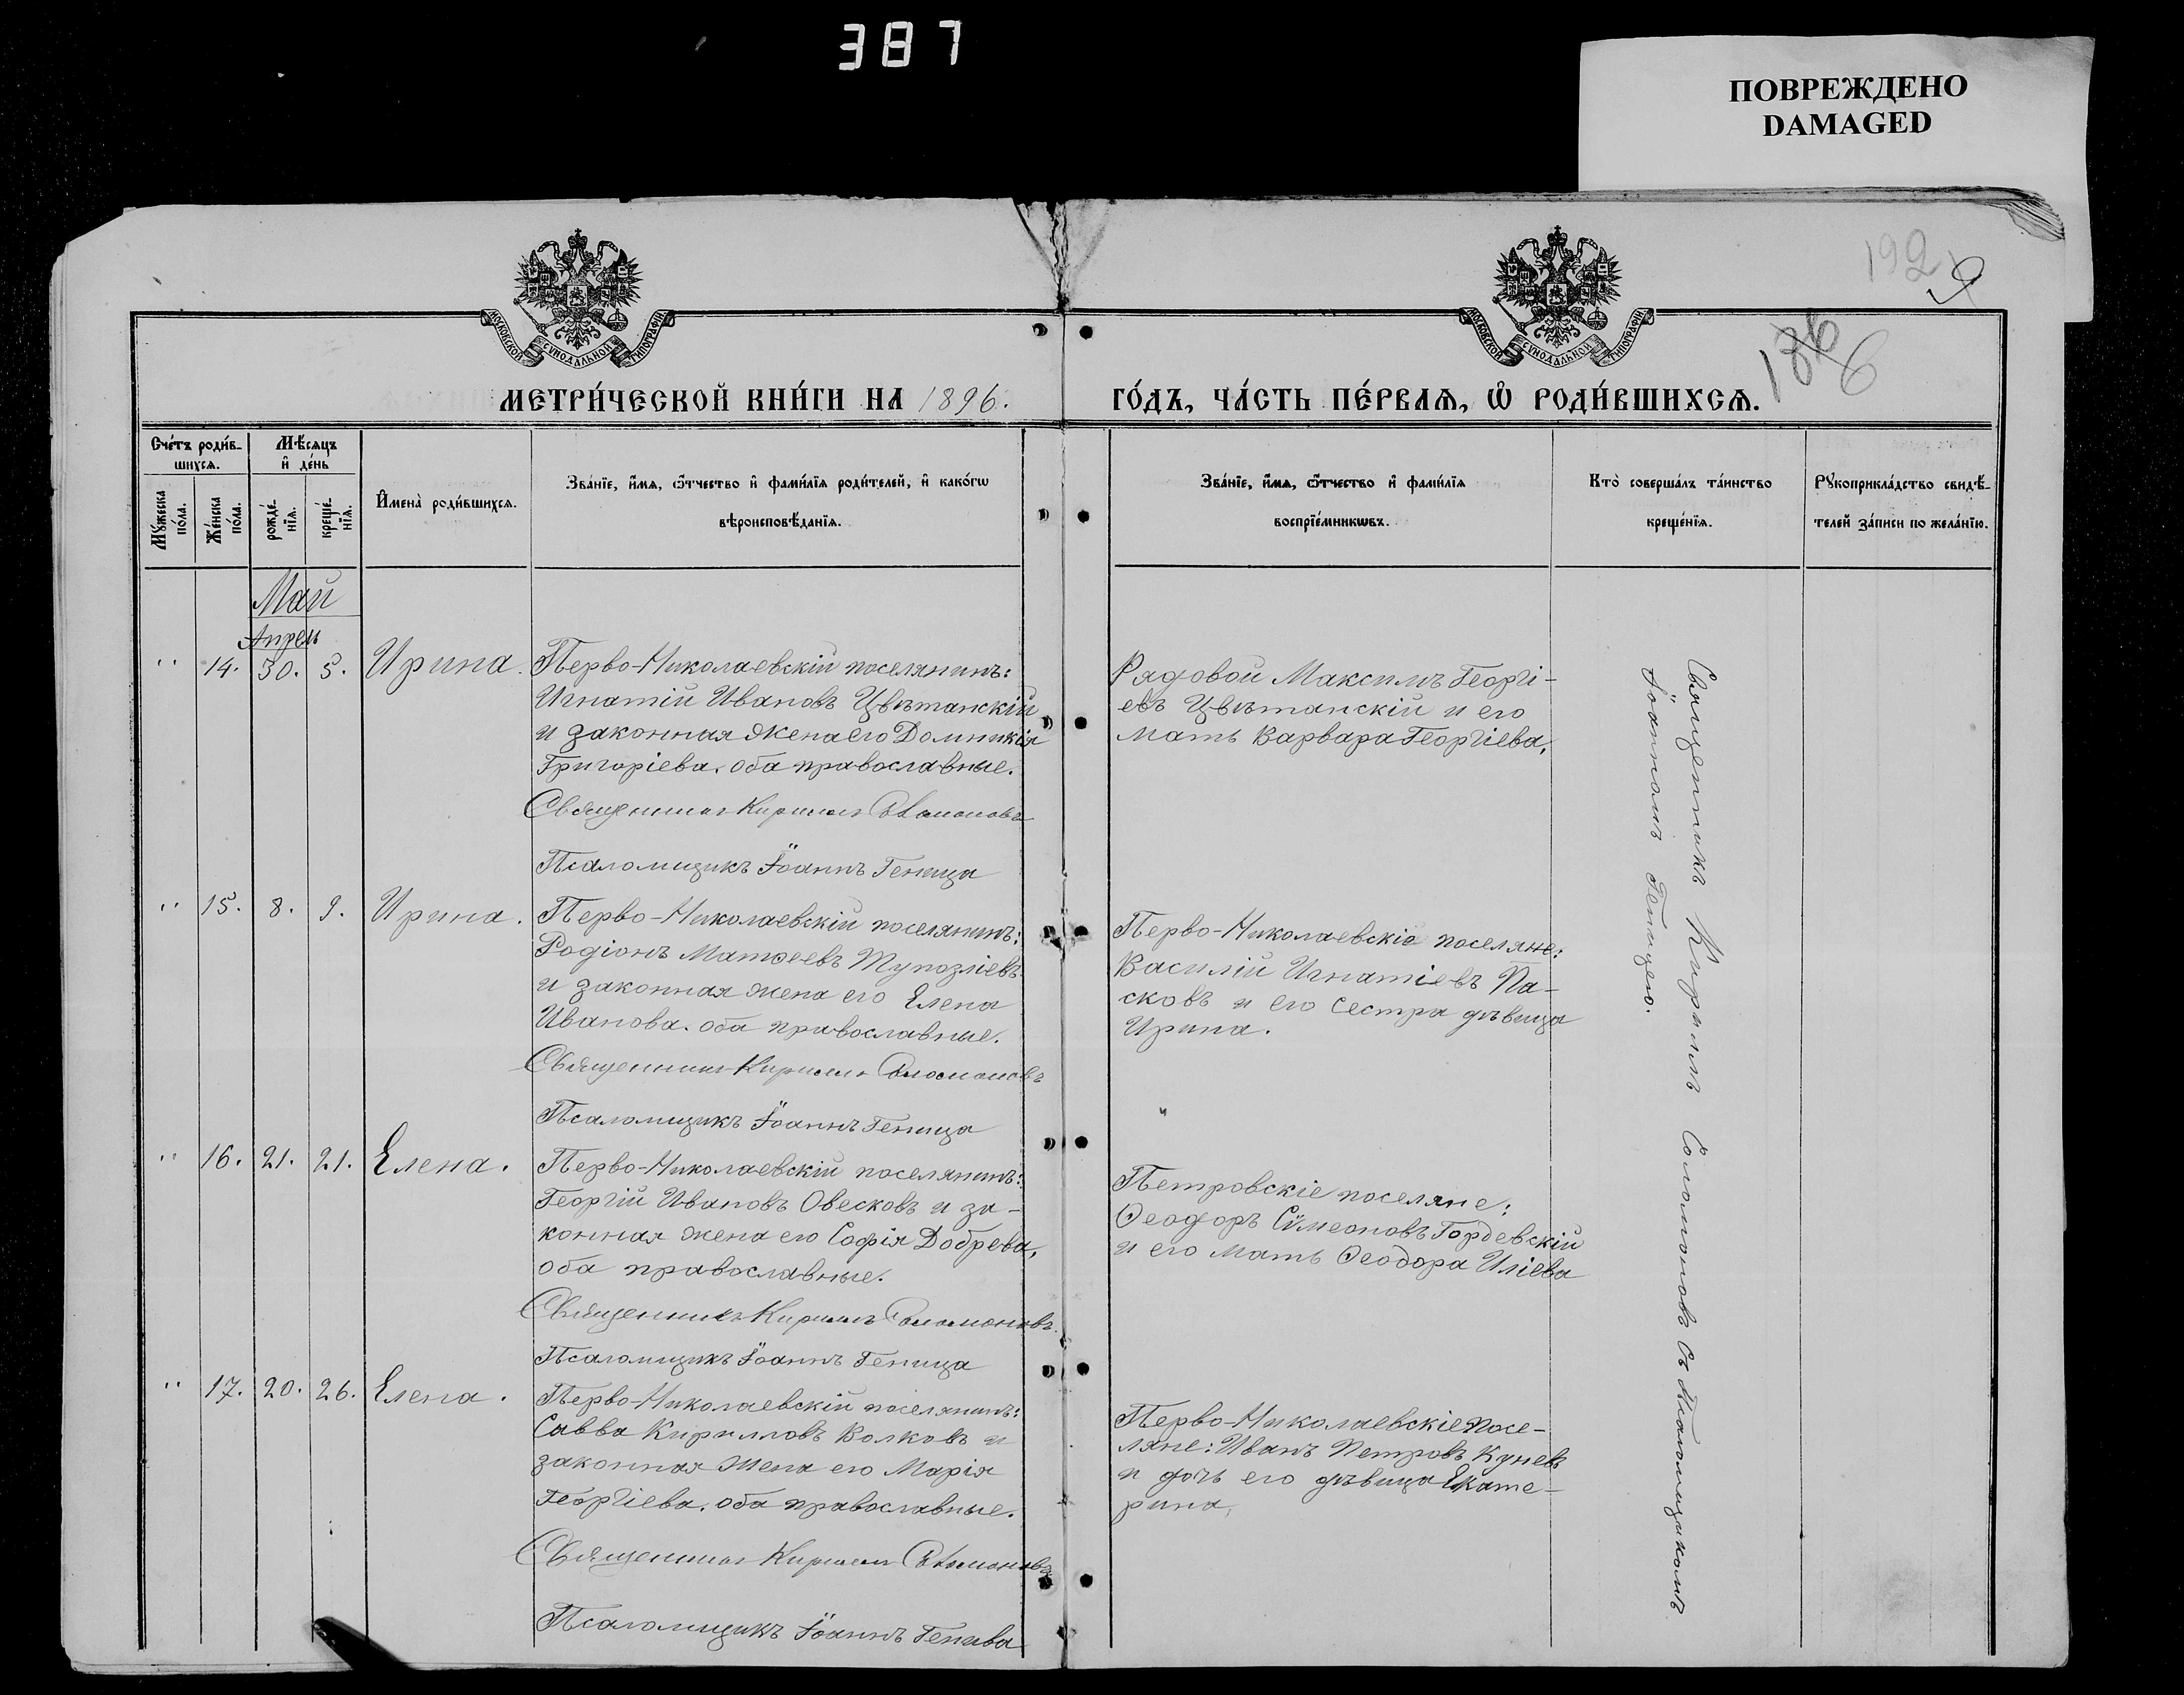 387
ПОВРЕЖДЕНО
DAMAGED
192
МОСКОВСКОЙ СѴНОДАЛЬНОЙ ТИПОГРАФІИ
МОСКОВСКОЙ СѴНОДАЛЬНОЙ ТИПОГРАФІИ
МЕТРИ́ЧЕСКОЙ КНИ́ГИ НА 1896.
ГО́ДЪ, ЧА́СТЬ ПЕ́РВАѦ, Ѽ РОДИ́ВШИХСѦ.
Сче́тъ роди́в-
шихсѧ.
Мѣ́сѧцъ
и҆ де́нь
Мꙋ́жеска
по́ла.
Же́нска
по́ла.
рожде́-
нїѧ.
креще́-
нїѧ.
И҆мена̀ роди́вшихсѧ.
Зва́нїе, и҆́мѧ, ѻ҆́тчество и҆ фами́лїѧ роди́телей, и҆ како́гѡ
вѣроисповѣ́данїѧ.
Зва́нїе, и҆́мѧ, ѻ҆́тчество и҆ фами́лїѧ
воспрїе́мникѡвъ.
Кто̀ соверша́лъ та́инство
креще́нїѧ.
Рꙋкоприкла́дство свидѣ́-
телей за́писи по жела́нїю.
Май
Апрель
" 14. 30. 5. Ирина.
Перво-Николаевскій поселянинъ:
Игнатій Ивановъ Цвѣтанскій
и законная жена его Домникія
Григоріева. оба православные.
Священникъ Кириллъ Соломоновъ
Псаломщикъ Іоаннъ Геница
Рядовой Максимъ Георгі-
евъ Цвѣтанскій и его
мать Варвара Георгіева,
" 15. 8. 9. Ирина.
Перво-Николаевскій поселянинъ:
Родіонъ Матѳеевъ Тупозліевъ
и законная жена его Елена
Иванова. оба православные.
Священникъ Кириллъ Соломоновъ
Псаломщикъ Іоаннъ Геница
Перво-Николаевскіе поселяне:
Василій Игнатіевъ Па-
сковъ и его сестра дѣвица
Ирина.
" 16. 21. 21. Елена.
Перво-Николаевскій поселянинъ:
Георгій Ивановъ Овесковъ и за-
конная жена его Софія Добрева,
оба православные.
Священникъ Кириллъ Соломоновъ.
Псаломщикъ Іоаннъ Геница
Петровскіе поселяне:
Ѳеодоръ Сѵмеоновъ Гордевскій
и его мать Ѳеодора Иліева
" 17. 20. 26. Елена.
Перво-Николаевскій поселянинъ:
Савва Кирилловъ Волковъ и
законная жена его Марія
Георгіева. оба православные.
Священникъ Кириллъ Соломоновъ
Псаломщикъ Іоаннъ Геница
Перво-Николаевскіе посе-
ляне: Иванъ Петровъ Куневъ
и дочь его дѣвица Екате-
рина,
Священникъ Кириллъ Соломоновъ съ Псаломщикомъ
Іоанномъ Геницею.